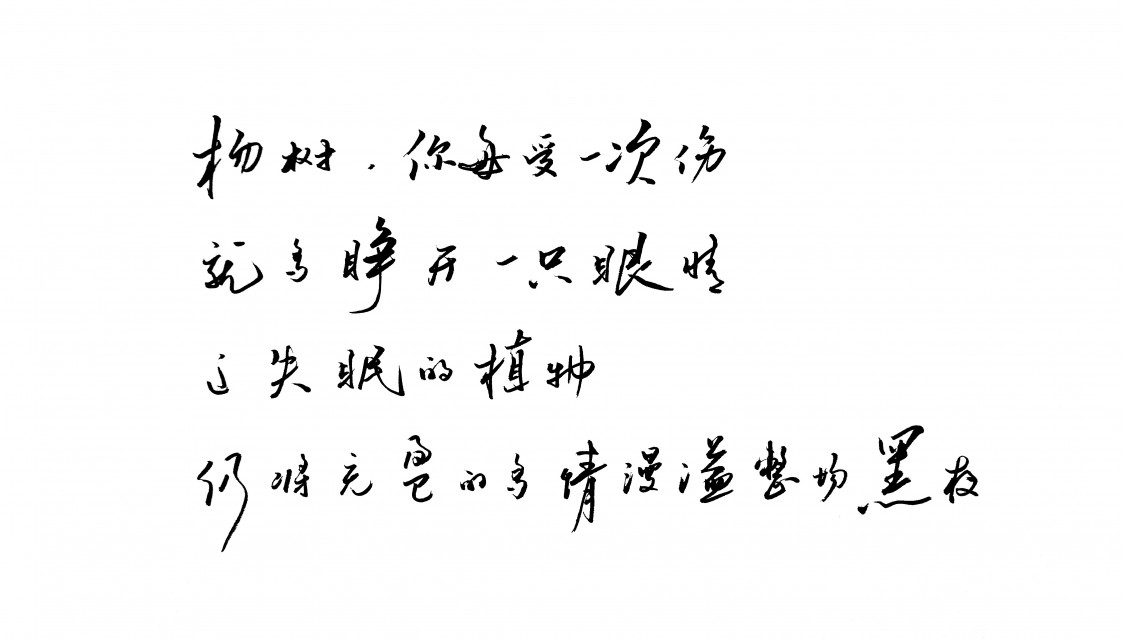 杨树，你每受一次伤
就多睁开一只眼睛
这失眠的植物
仍将充盈的多情漫溢整场黑夜